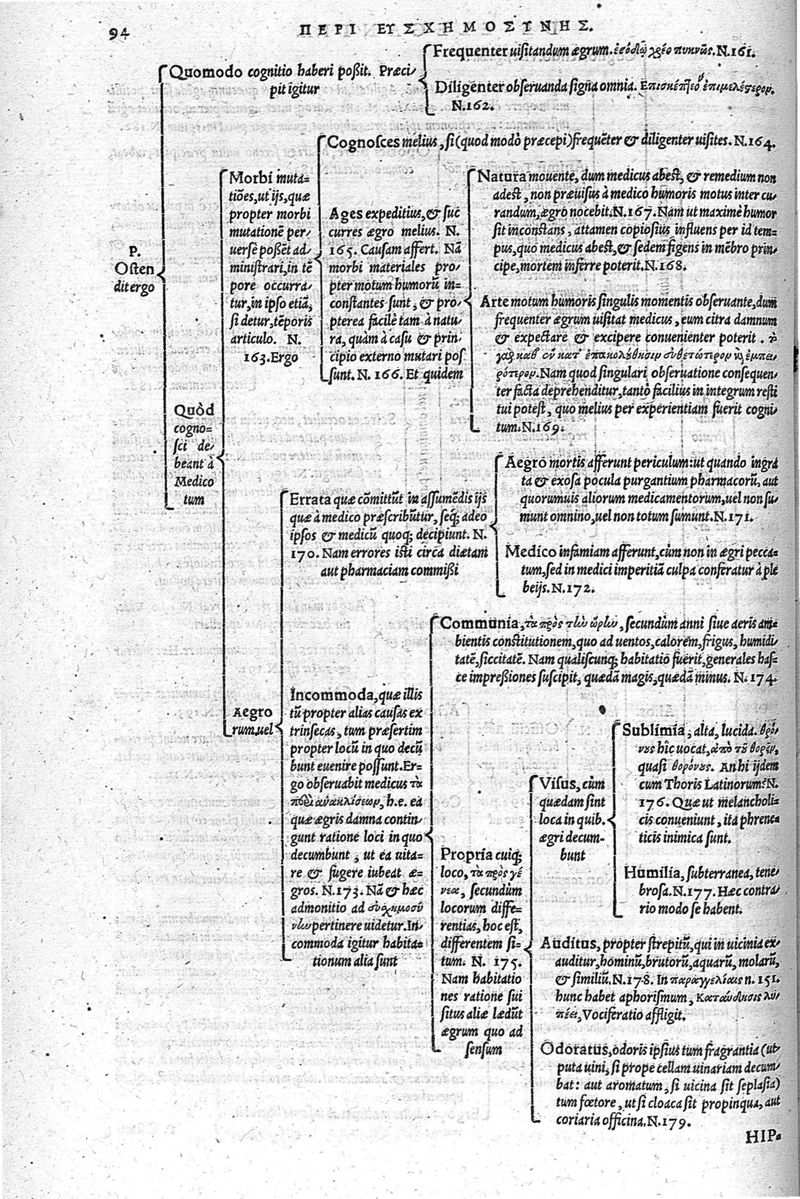 94 ΠΕΡΙ ΕΥΣΧΗΜΟΣΥΝΗΣ.
P.
Osten
dit ergo
Quomodo cognitio haberi poßit. Præci-
pit igitur
Frequenter uisitandum ægrum. N.161.
Diligenter obseruanda signa omnia.
N.162.
Quòd
cogno-
sci de-
beant à
Medico
tum
Morbi muta-
tiões, ut ijs, quæ
propter morbi
mutationē per-
uersè possēt ad-
ministrari, in tē
pore occurra-
tur, in ipso etiā,
si detur, tēporis
articulo. N.
163. Ergo
Cognosces melius, si (quod modò præcepi) frequēter & diligenter uisites. N.164.
Ages expeditius, & suc
curres ægro melius. N.
165. Causam affert. Nā
morbi materiales pro-
pter motum humorū in-
constantes sunt, & pro-
pterea facilè tam à natu-
ra, quàm à casu & prin-
cipio externo mutari pos
sunt. N. 166. Et quidem
Natura mouente, dum medicus abest, & remedium non
adest, non præuisus à medico humoris motus inter cu-
randum, ægro nocebit. N.167. Nam ut maximè humor
sit inconstans, attamen copiosius influens per id tem-
pus, quo medicus abest, & sedem figens in mēbro prin-
cipe, mortem inferre poterit. N.168.
Arte motum humoris singulis momentis obseruante, dum
frequenter ægrum uisitat medicus, eum citra damnum
& expectare & excipere conuenienter poterit.
Nam quod singulari obseruatione consequen-
ter facta deprehenditur, tantò facilius in integrum resti
tui potest, quo melius per experientiam fuerit cogni-
tum. N.169.
Aegro
rum, uel
Errata quæ cōmittūt in assumēdis ijs
quæ à medico præscribūtur, seq; adeo
ipsos & medicū quoq; decipiunt. N.
170. Nam errores isti circa diætam
aut pharmaciam commißi
Aegro mortis afferunt periculum: ut quando ingra
ta & exosa pocula purgantium pharmacorū, aut
quorumuis aliorum medicamentorum, uel non su-
munt omnino, uel non totum sumunt. N.171.
Medico infamiam afferunt, cùm non in ægri pecca-
tum, sed in medici imperitiā culpa conferatur à ple
beijs. N.172.
Incommoda, quæ illis
tū propter alias causas ex
trinsecas, tum præsertim
propter locū in quo decū
bunt euenire possunt. Er-
go obseruabit medicus τὰ
h.e. ea
quæ ægris damna contin-
gunt ratione loci in quo
decumbunt, ut ea uita-
re & fugere iubeat æ-
gros. N.173. Nā & hæc
admonitio ad
pertinere uidetur. In-
commoda igitur habita-
tionum alia sunt
Communia, secundùm anni siue aeris am-
bientis constitutionem, quo ad uentos, calorem, frigus, humidi-
tatē, siccitatē. Nam qualiscunq; habitatio fuerit, generales has-
ce impreßiones suscipit, quædā magis, quædā minus. N. 174.
Propria cuiq;
loco,
secundùm
locorum diffe-
rentias, hoc est,
differentem si-
tum. N. 175.
Nam habitatio
nes ratione sui
situs aliæ lædūt
ægrum quo ad
sensum
Visus, cùm
quædam sint
loca in quib.
ægri decum-
bunt
Sublimia, alta, lucida.
hîc uocat,
quasi An hi ijdem
cum Thoris Latinorum? N.
176. Quæ ut melancholi-
cis conueniunt, ita phrene-
ticis inimica sunt.
Humilia, subterranea, tene
brosa. N.177. Hæc contra-
rio modo se habent.
Auditus, propter strepitū, qui in uicinia ex-
auditur, hominū, brutorū, aquarū, molarū,
& similiū. N.178. In παραγγελίαις n. 151.
hunc habet aphorismum,
Vociferatio affligit.
Odoratus, odoris ipsius tum fragrantia (ut-
puta uini, si prope cellam uinariam decum-
bat: aut aromatum, si uicina sit seplasia)
tum fœtore, ut si cloaca sit propinqua, aut
coriaria officina. N.179.
HIP-